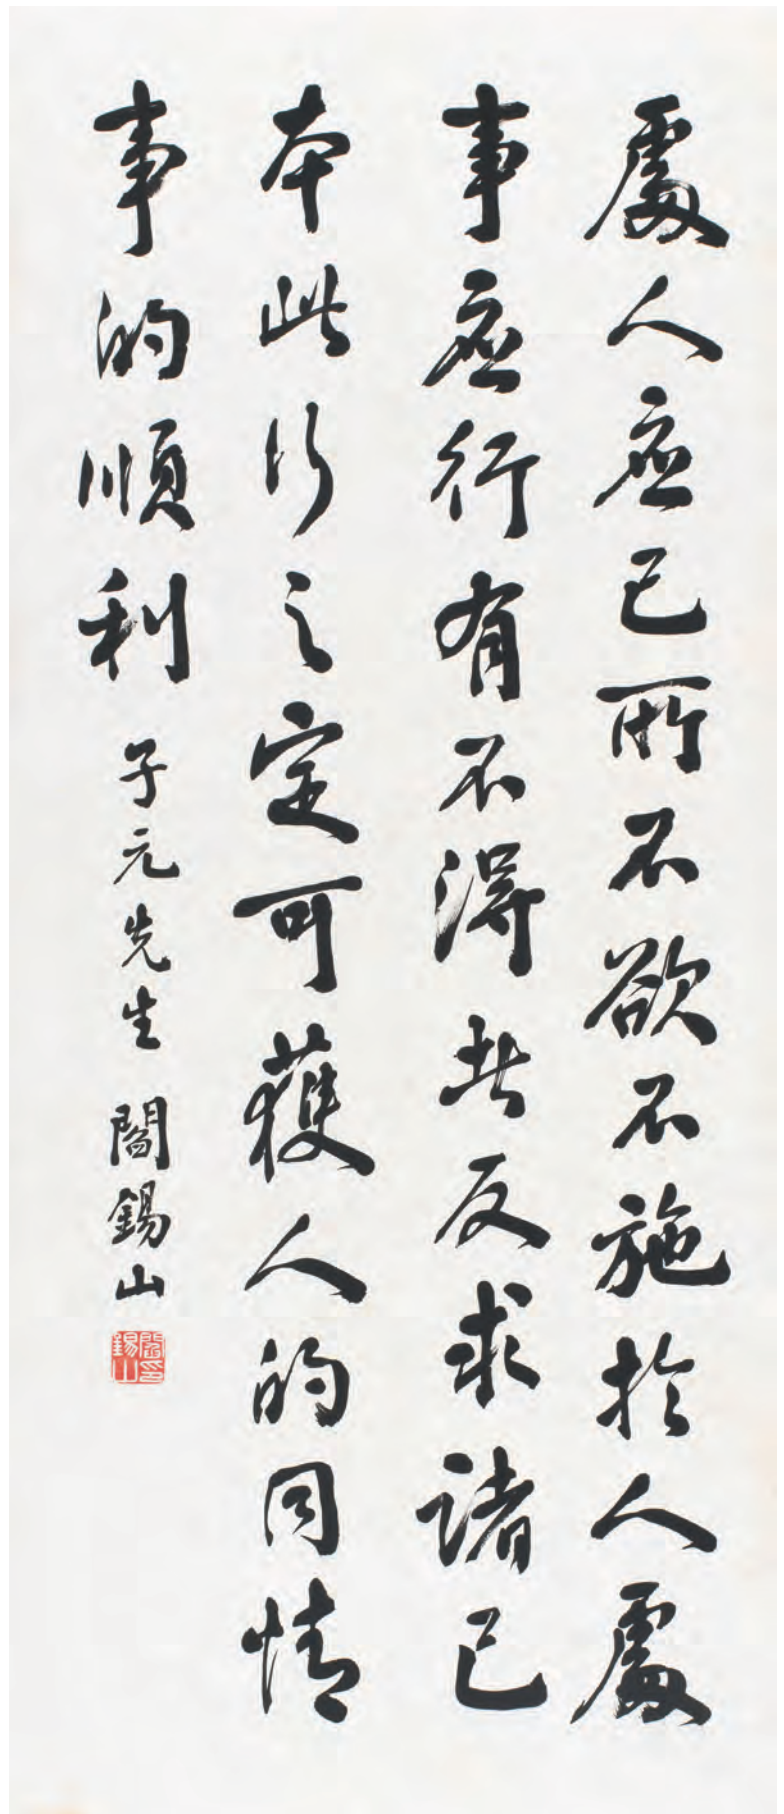 處人应己所不欲不施於人處
事应行有不得者反求諸己
本此行之定可獲人的同情
事的順利 子元先生 閻錫山
閻印錫山